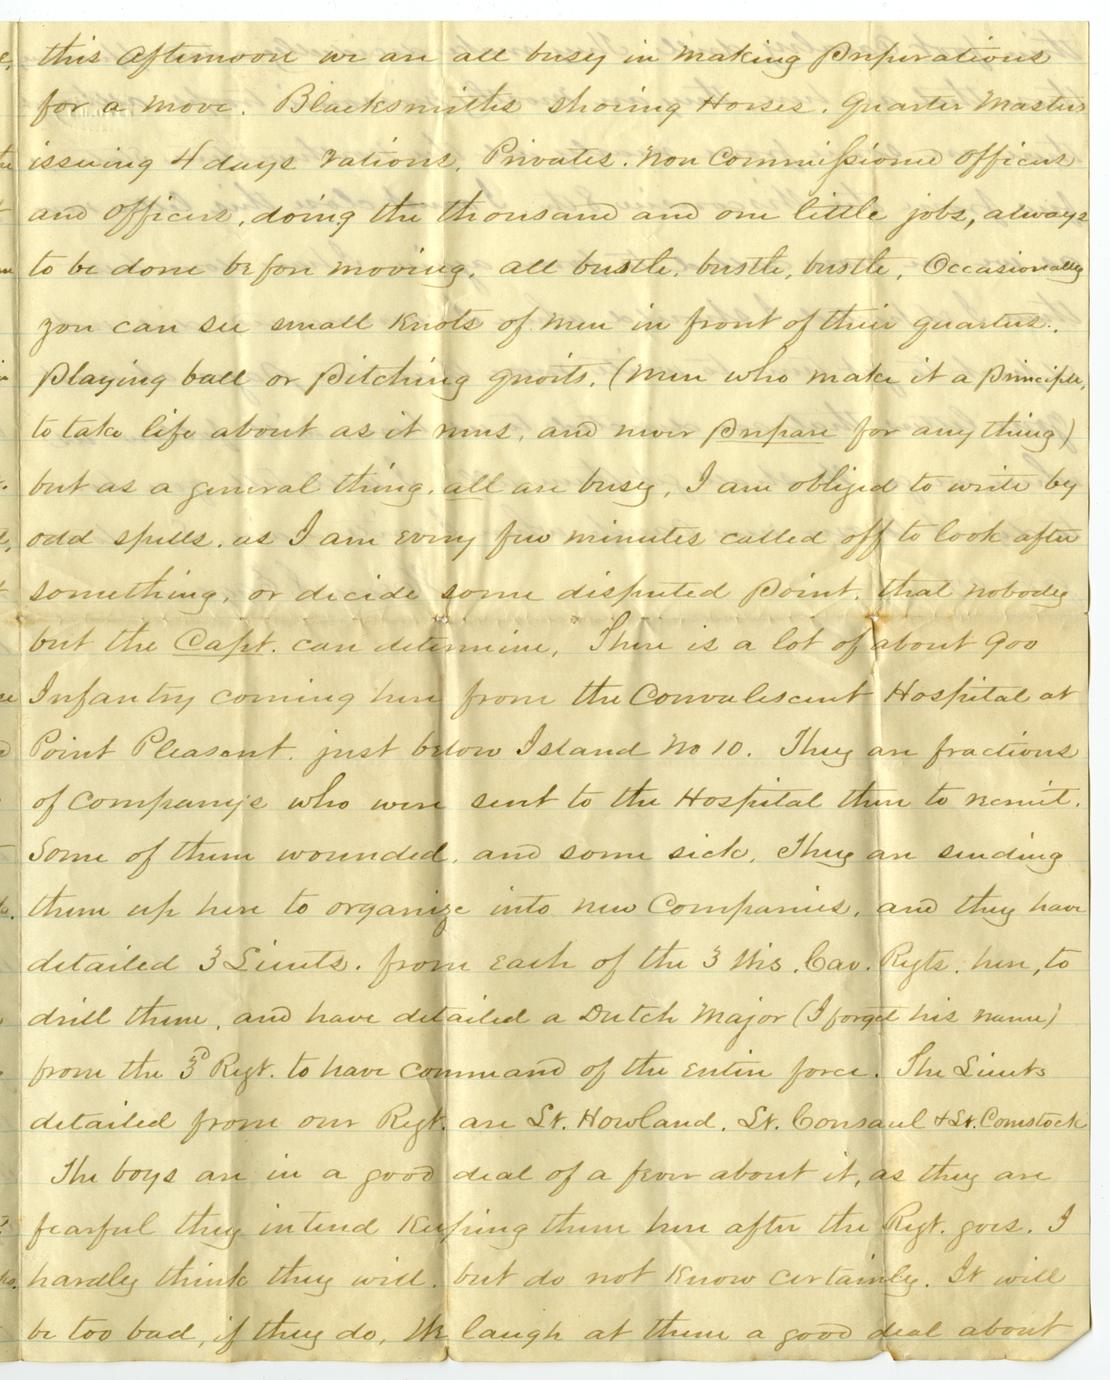 this afternoon we are all busy in making Preperations
for a move. Blacksmiths shoeing Horses. Quarter Master
issuing 4 days rations, Privates. Non Commissioned officers
and officers, doing the thousand and one little jobs, always
to be done before moving, all bustle, bustle, bustle, Occasionally
you can see small Knots of men in front of their quarters.,
Playing ball or Pitching quoits, (men who make it a Principle,
to take life about as it runs, and never Prepare for anything)
but as a general thing, all are busy, I am obliged to write by
odd spells, as I am every few minutes called off to look after
something, or decide some disputed Point, that nobody
but the Capt. can determine, There is a lot of about 900
Infantry coming here from the Convalescent Hospital at
Point Pleasant, just below Island No 10. They are fractions
of companys who were sent to the Hospital there to recruit.
Some of them wounded, and some sick, They are sending
them up here to organize into new Companies, and they have
detailed 3 Lieuts. from each of the 3 Wis. Cav. Regts. here, to
drill them, and have detailed a Dutch Major (I forget his name)
from the 3d Regt. to have command of the entire force. The Lieuts
detailed from our Regt. are Lt. Howland, Lt. Consaul & Lt. Comstock
The boys are in a good deal of a fever about it, as they are
fearful they intend Keeping them here after the Regt. goes. I
hardly think they will, but do not Know certainly. It will
be too bad, if they do, We laugh at them a good deal about